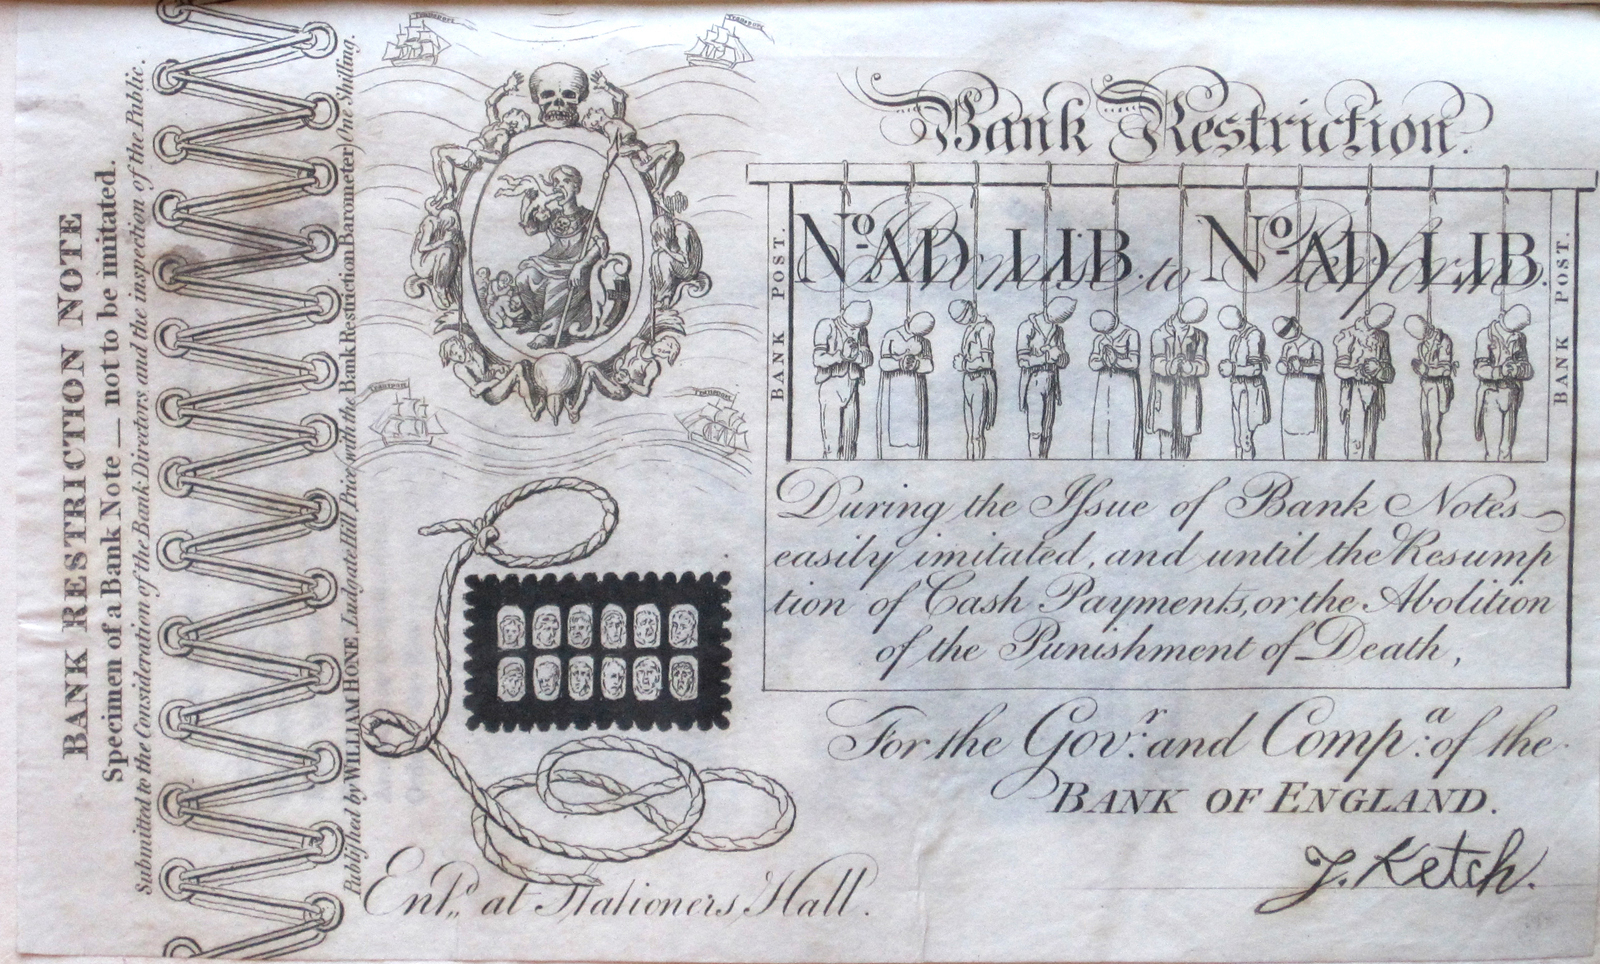 BANK RESTRICTION NOTE
Specimen of a Bank Note — not to be imitated.
Submitted to the Consideration of the Bank Directors and the inspection of the Public.
Publiſhed by WILLIAM HONE, Ludgate Hill Price with the Bank Restriction Barometer, One Shilling.
TRANSPORT
TRANSPORT
TRANSPORT
TRANSPORT
Bank Restriction.
BANK POST.
No. AD. LIB. No. AD. LIB.
Promise to Perform
BANK POST.
During the Iſsue of Bank Notes
easily imitated, and until the Resump
tion of Cash Payments, or the Abolition
of the Punishment of Death,
For the Govr. and Compa. of the
BANK OF ENGLAND.
J. Ketch.
Entd. at Stationers Hall.